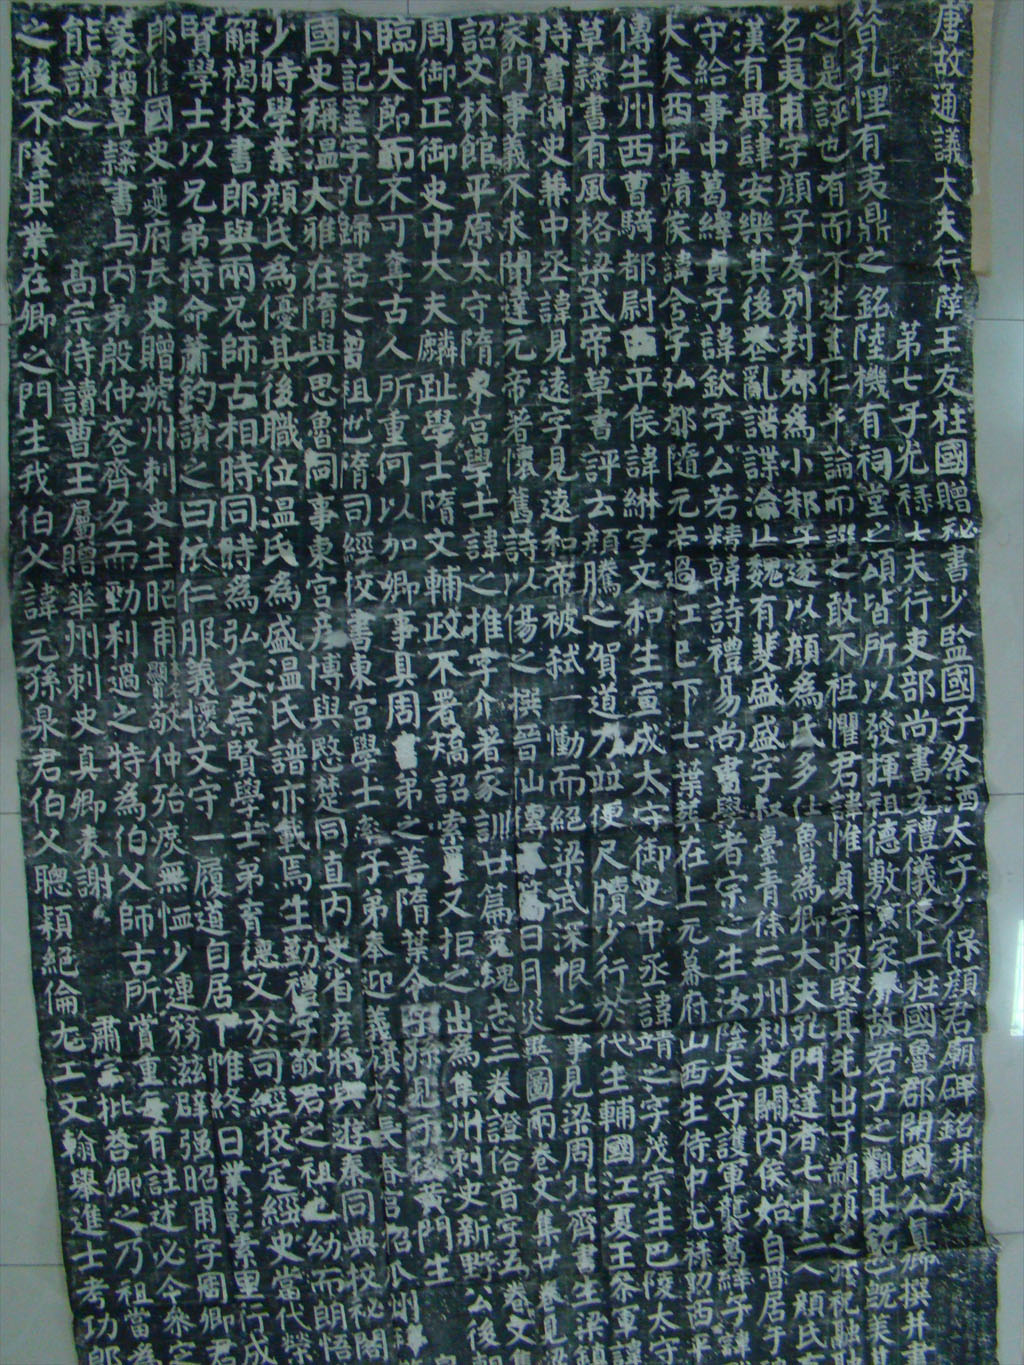 唐故通議大夫行薛王友柱國贈秘書少監國子祭酒太子少保顏君廟碑銘并序
第七子光祿大夫行吏部尚書充禮儀使上柱國魯郡開國公真卿撰并書
昔孔悝有夷鼎之銘陸機有祠堂之頌皆所以發揮祖德敷演家聲故君子之觀其銘也既美其
之是誣也有而不述豈仁乎論而譔之敢不祗懼君諱惟貞字叔堅其先出于顓頊之孫祝融
名夷甫字顏子友別封郳為小邾子遂以顏為氏多仕魯為卿大夫孔門達者七十二人顏氏
漢有異肆安樂其後喪亂譜諜淪亡魏有斐盛盛字叔臺青徐二州刺史關內侯始自魯居于
守給事中葛繹貞子諱欽字公若精韓詩禮易尚書學者宗之生汝陰太守護軍襲葛繹子諱
大夫西平靖侯諱含字弘都隨元帝過江已下七葉葬在上元幕府山西生侍中光祿勳西平
傳生州西曹騎都尉西平侯諱綝字文和生宣城太守御史中丞諱靖之字茂宗生巴陵太守
草隸書有風格梁武帝草書評云顏騰之賀道力並便尺牘少行於代生輔國江夏王參軍諱
持書御史兼中丞諱見遠字見遠和帝被弒一慟而絕梁武深恨之事見梁周北齊書生梁鎮
家門事義不求聞達元帝著懷舊詩以傷之撰晉仙傳五篇日月災異圖兩卷文集廿卷見
詔文林館平原太守隋東宮學士諱之推字介著家訓廿篇冤魂志三卷證俗音字五卷文
周御正御史中大夫麟趾學士隋文輔政不署矯詔索璽又拒之出為集州刺史新野公後
臨大節而不可奪古人所重何以加卿事具周書弟之善隋葉令字孫見于後黃門生
小記室字孔歸君之曾祖也隋司經校書東宮學士率子弟奉迎義旗於長春宮召瓜州
國史稱溫大雅在隋與思魯同事東宮彥博與愍楚同直內史省彥將與遊秦同典校秘閣
少時學業顏氏為優其後職位溫氏為盛溫氏譜亦載焉生勤禮字敬君之祖也幼而朗悟
解褐校書郎與兩兄師古相時同時為弘文崇賢學士弟育德又於司經校定經史當代榮
賢學士以兄弟特命蕭鈞讚之曰依仁服義懷文守一履道自居下帷終日業彰素里行成
郎修國史夔府長史贈虢州刺史生昭甫顯甫敬仲殆庶無恤少連務滋辟强昭甫字周卿君
篆籀草隸書与內弟殷仲容齊名而勁利過之特為伯父師古所賞重每有註述必令參定
能讀之　高宗侍讀曹王屬贈華州刺史真卿表謝　肅宗批荅卿之乃祖當為
之後不墜其業在卿之門生我伯父諱元孫泉君伯父聰穎絕倫尤工文翰舉進士考功郎